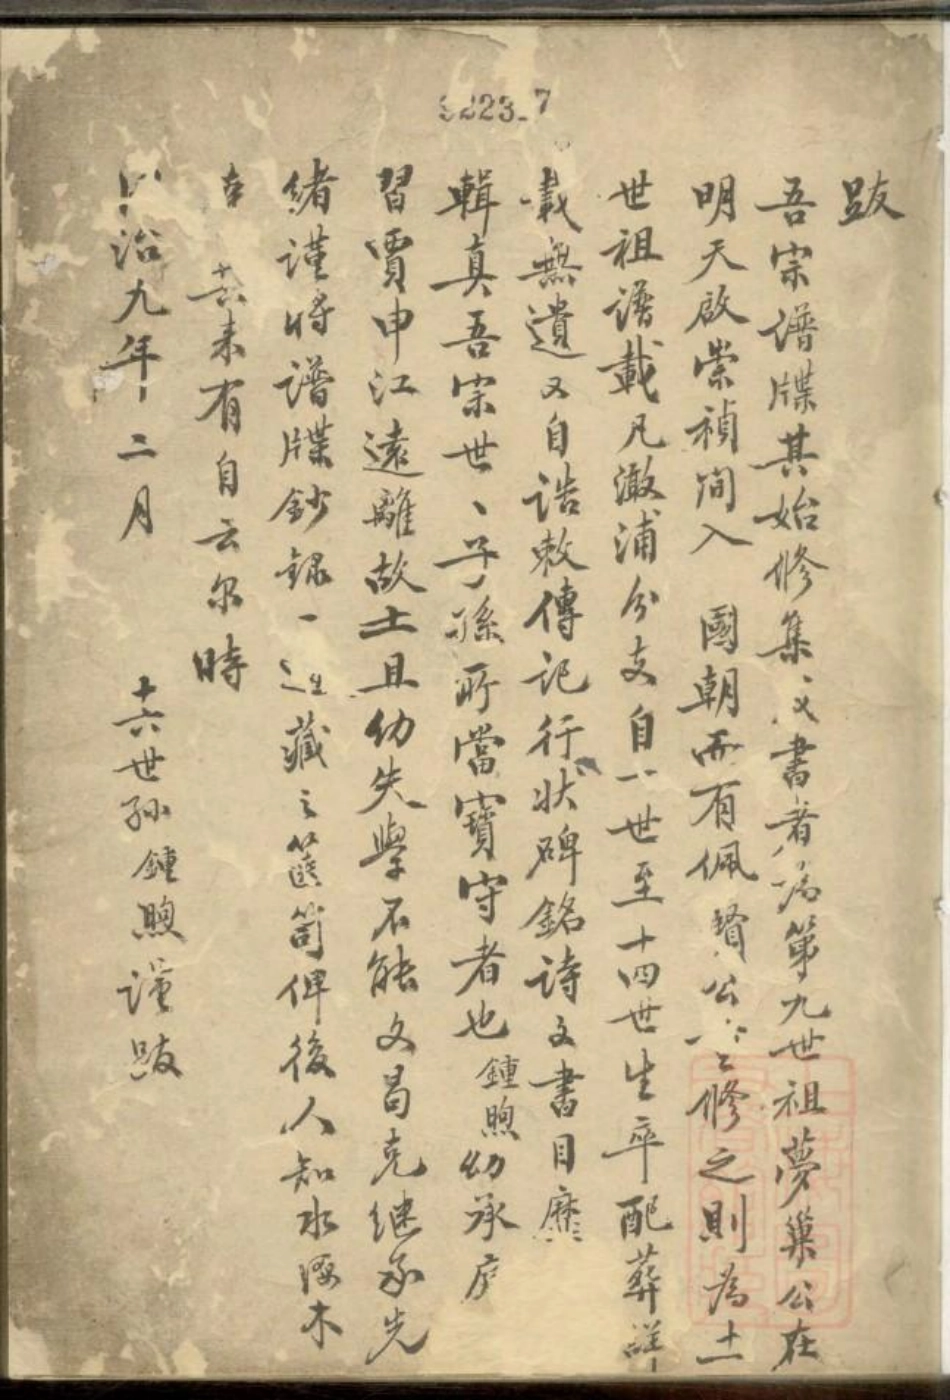 9223-7
跋
吾宗譜牒其始修集文書者為第九世祖夢巢公在
明天啟崇禎間入 國朝而有佩賢公修之則為十一
世祖譜載凡澉浦分支自一世至十四世生卒配葬詳
載無遺又自誥敕傳記行狀碑銘詩文書目靡
輯真吾宗世丶子孫所當寶守者也鍾煦幼承庭
習賈申江遠離故土且幼失學不能文曷克繼承先
緒謹將譜牒鈔錄一藏之篋笥俾後人知水源木
本 來有自云尔時
治九年二月 十六世孫鍾煦謹跋